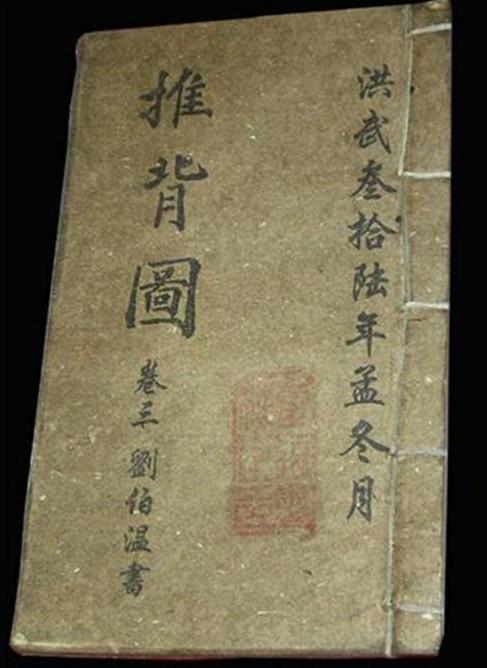 洪武叁拾陸年孟冬月
推背圖
卷三 劉伯温書